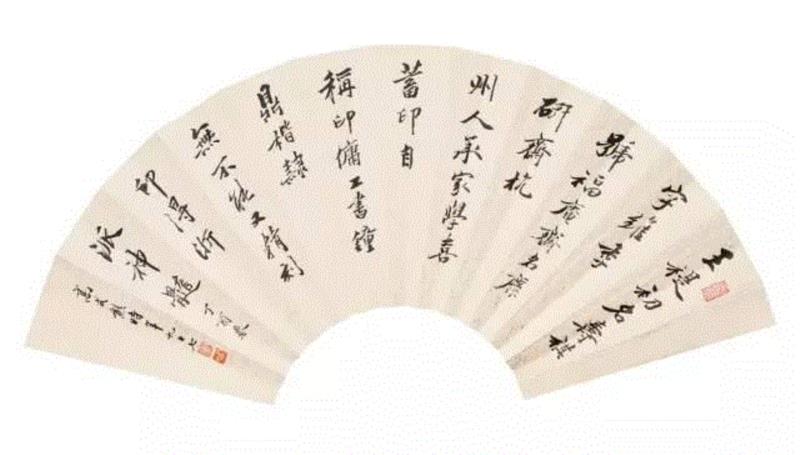 王禔初名壽祺
字維季
號福廣齋名麋
研齋杭
州人承家學喜
蓄印自
稱印傭工書鐘
鼎楷隸
無不能又精刻
印得浙
派神髓 丁酉冬
高式熊時年九十七